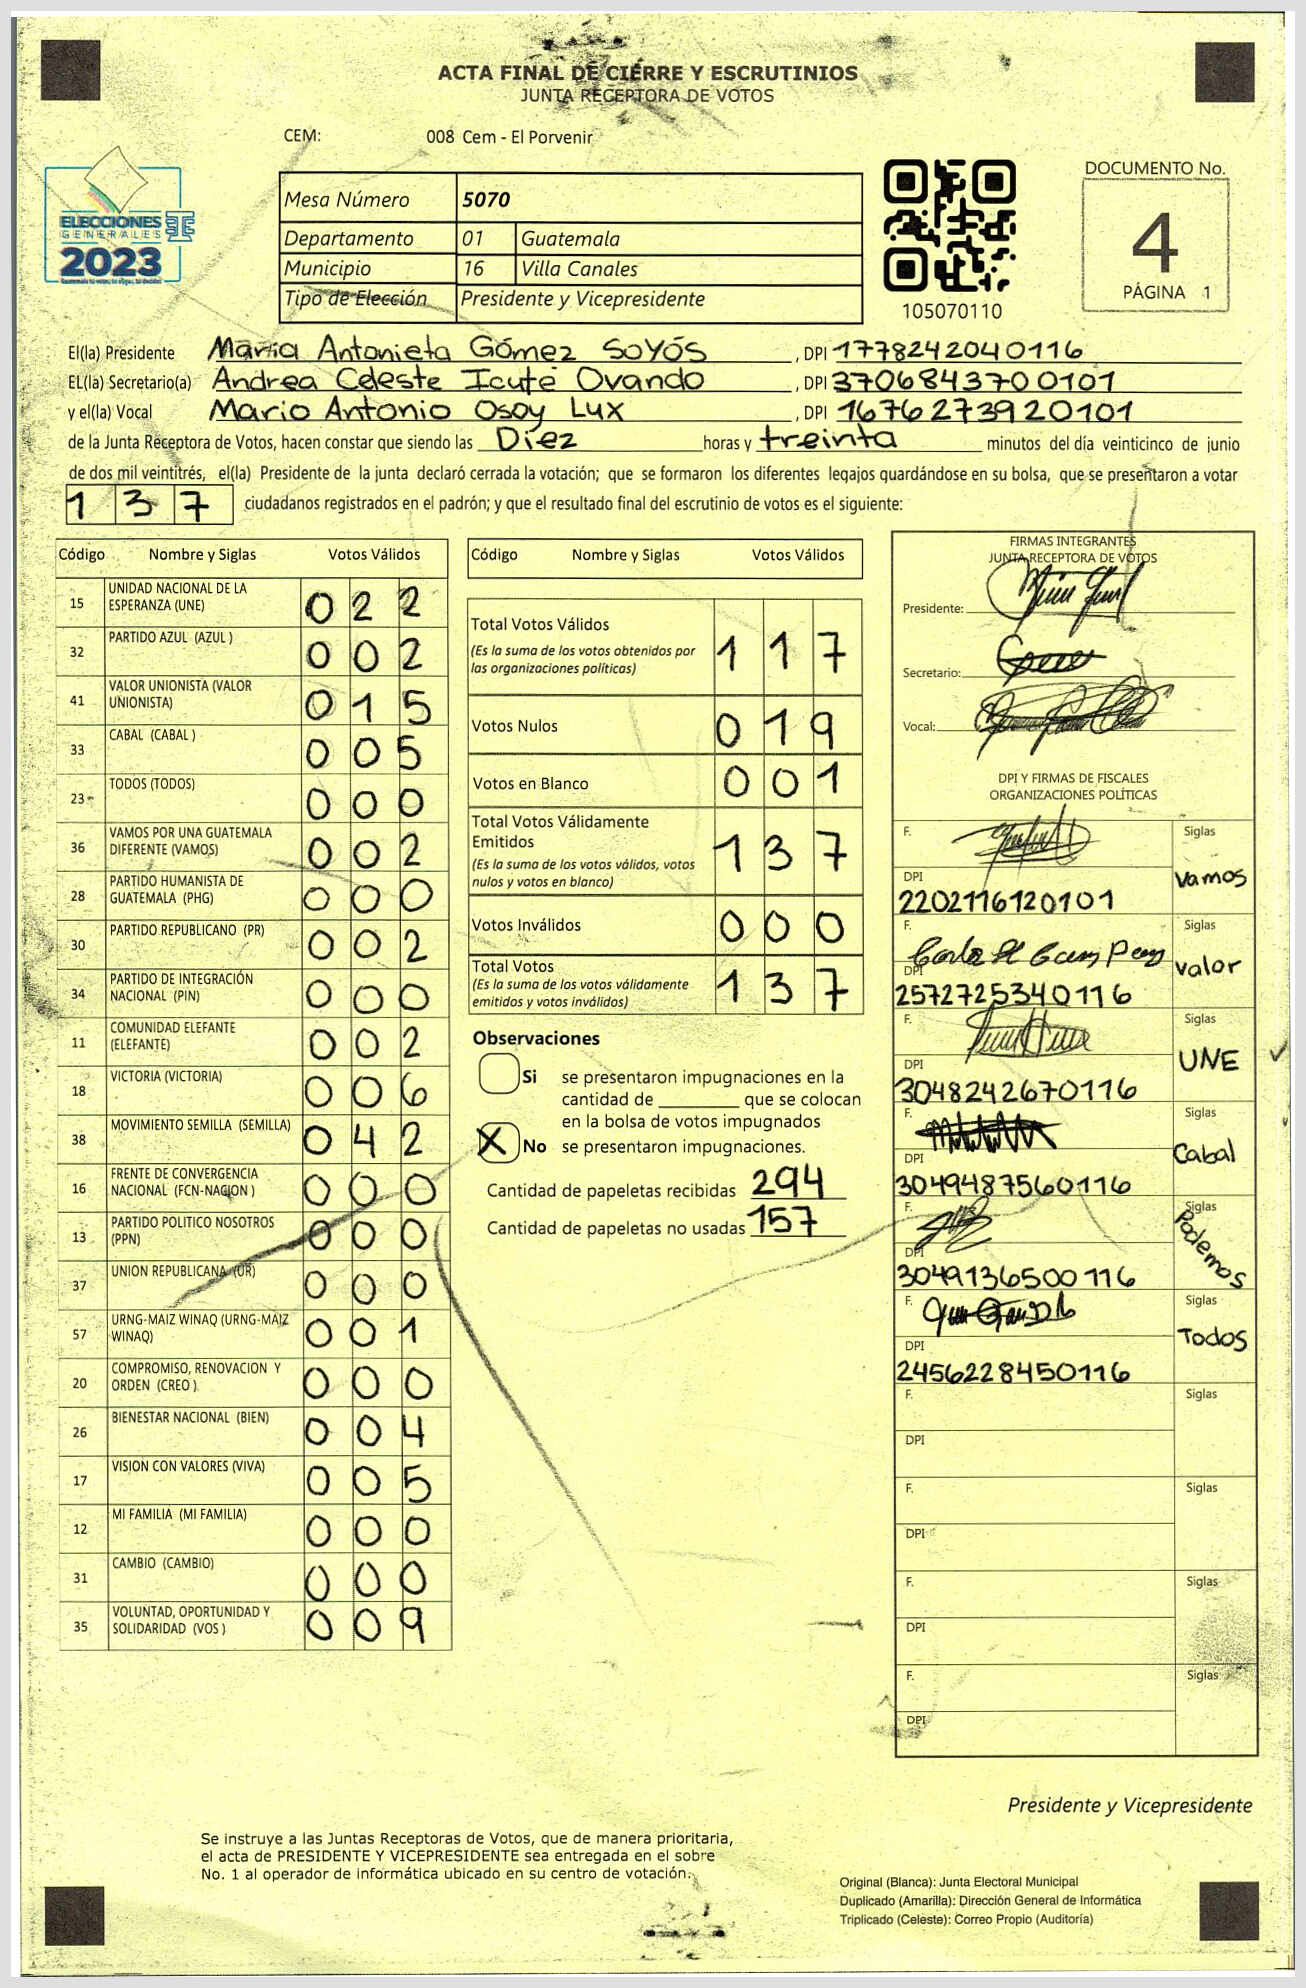 ACTA FINAL DE CIERRE Y ESCRUTINIOS
JUNTA RECEPTORA DE VOTOS
CEM: 008 Cem - El Porvenir
ELECCIONES
GENERALES
2023
Mesa Número 5070
Departamento 01 Guatemala
Municipio 16 Villa Canales
Tipo de Elección Presidente y Vicepresidente
105070110
DOCUMENTO No.
4
PÁGINA 1
El(la) Presidente María Antonieta Gómez Soyós, DPI 1778242040116
EL(la) Secretario(a) Andrea Celeste Icuté Ovando, DPI 3706843700101
y el(la) Vocal Mario Antonio Osoy Lux, DPI 1676273920101
de la Junta Receptora de Votos, hacen constar que siendo las Diez horas y treinta minutos del día veinticinco de junio
de dos mil veintitrés, el(la) Presidente de la junta declaró cerrada la votación; que se formaron los diferentes legajos quardándose en su bolsa, que se presentaron a votar
137 ciudadanos registrados en el padrón; y que el resultado final del escrutinio de votos es el siguiente:
Código Nombre y Siglas Votos Válidos
15 UNIDAD NACIONAL DE LA ESPERANZA (UNE) 0 2 2
32 PARTIDO AZUL (AZUL ) 0 0 2
41 VALOR UNIONISTA (VALOR UNIONISTA) 0 1 5
33 CABAL (CABAL ) 0 0 5
23 TODOS (TODOS) 0 0 0
36 VAMOS POR UNA GUATEMALA DIFERENTE (VAMOS) 0 0 2
28 PARTIDO HUMANISTA DE GUATEMALA (PHG) 0 0 0
30 PARTIDO REPUBLICANO (PR) 0 0 2
34 PARTIDO DE INTEGRACIÓN NACIONAL (PIN) 0 0 0
11 COMUNIDAD ELEFANTE (ELEFANTE) 0 0 2
18 VICTORIA (VICTORIA) 0 0 6
38 MOVIMIENTO SEMILLA (SEMILLA) 0 4 2
16 FRENTE DE CONVERGENCIA NACIONAL (FCN-NACION ) 0 0 0
13 PARTIDO POLITICO NOSOTROS (PPN) 0 0 0
37 UNION REPUBLICANA (UR) 0 0 0
57 URNG-MAIZ WINAQ (URNG-MAIZ WINAQ) 0 0 1
20 COMPROMISO, RENOVACION Y ORDEN (CREO ) 0 0 0
26 BIENESTAR NACIONAL (BIEN) 0 0 4
17 VISION CON VALORES (VIVA) 0 0 5
12 MI FAMILIA (MI FAMILIA) 0 0 0
31 CAMBIO (CAMBIO) 0 0 0
35 VOLUNTAD, OPORTUNIDAD Y SOLIDARIDAD (VOS ) 0 0 9
Código Nombre y Siglas Votos Válidos
Total Votos Válidos 1 1 7
(Es la suma de los votos obtenidos por
las organizaciones políticas)
Votos Nulos 0 1 9
Votos en Blanco 0 0 1
Total Votos Válidamente
Emitidos 1 3 7
(Es la suma de los votos válidos, votos
nulos y votos en blanco)
Votos Inválidos 0 0 0
Total Votos 1 3 7
(Es la suma de los votos válidamente
emitidos y votos inválidos)
Observaciones
Si se presentaron impugnaciones en la
cantidad de ________ que se colocan
en la bolsa de votos impugnados
X No se presentaron impugnaciones.
Cantidad de papeletas recibidas 294
Cantidad de papeletas no usadas 157
FIRMAS INTEGRANTES
JUNTA RECEPTORA DE VOTOS
Presidente:
Secretario:
Vocal:
DPI Y FIRMAS DE FISCALES
ORGANIZACIONES POLÍTICAS
F. Siglas Vamos
DPI 2202116120101
F. Siglas Valor
DPI 2572725340116
F. Siglas UNE
DPI 3048242670116
F. Siglas Cabal
DPI 3049487560116
F. Siglas Podemos
DPI 3049136500116
F. Siglas Todos
DPI 2456228450116
F. Siglas
DPI
F. Siglas
DPI
F. Siglas
DPI
F. Siglas
DPI
Presidente y Vicepresidente
Se instruye a las Juntas Receptoras de Votos, que de manera prioritaria,
el acta de PRESIDENTE Y VICEPRESIDENTE sea entregada en el sobre
No. 1 al operador de informática ubicado en su centro de votación.
Original (Blanca): Junta Electoral Municipal
Duplicado (Amarilla): Dirección General de Informática
Triplicado (Celeste): Correo Propio (Auditoría)